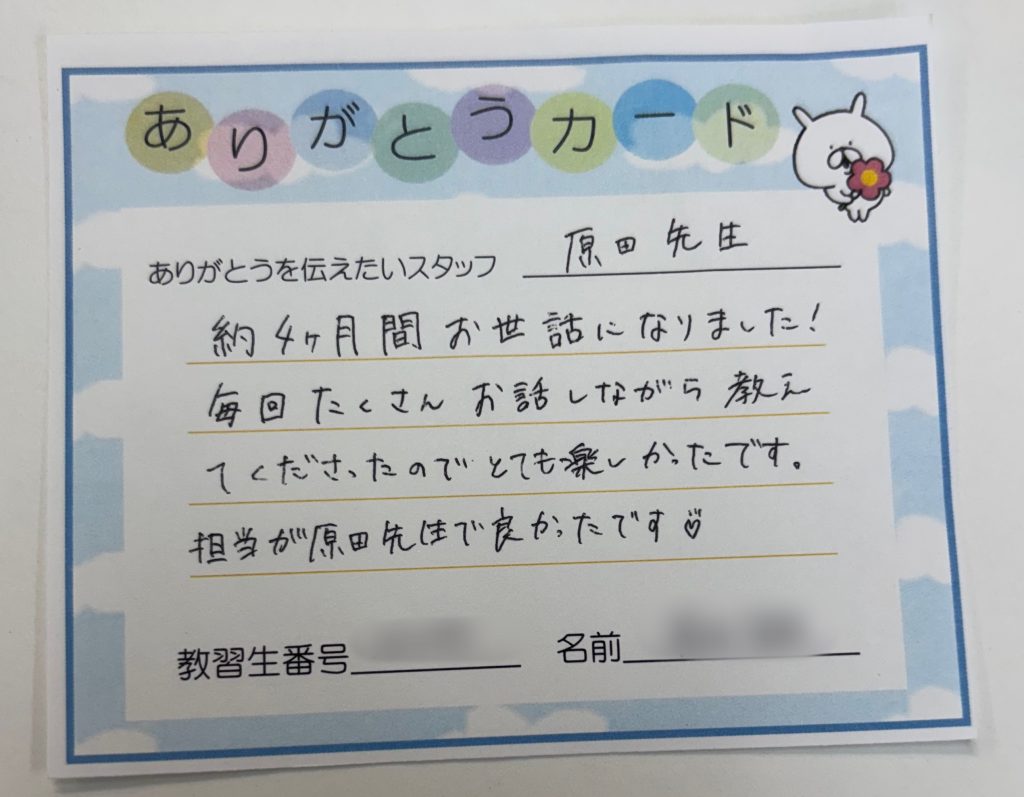 ありがとうカード
ありがとうを伝えたいスタッフ 原田先生
約4ヶ月間お世話になりました!
毎回たくさんお話しながら教え
てくださったのでとても楽しかったです。
担当が原田先生で良かったです♡
教習生番号 名前